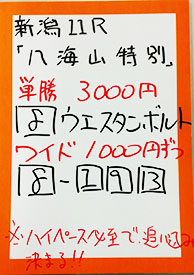 新潟11R
「八海山特別」
単勝 3000円
8 ウエスタンボルト
ワイド 1000円ずつ
8-1 9 13
※ハイペース必至で追込み
決まる!!